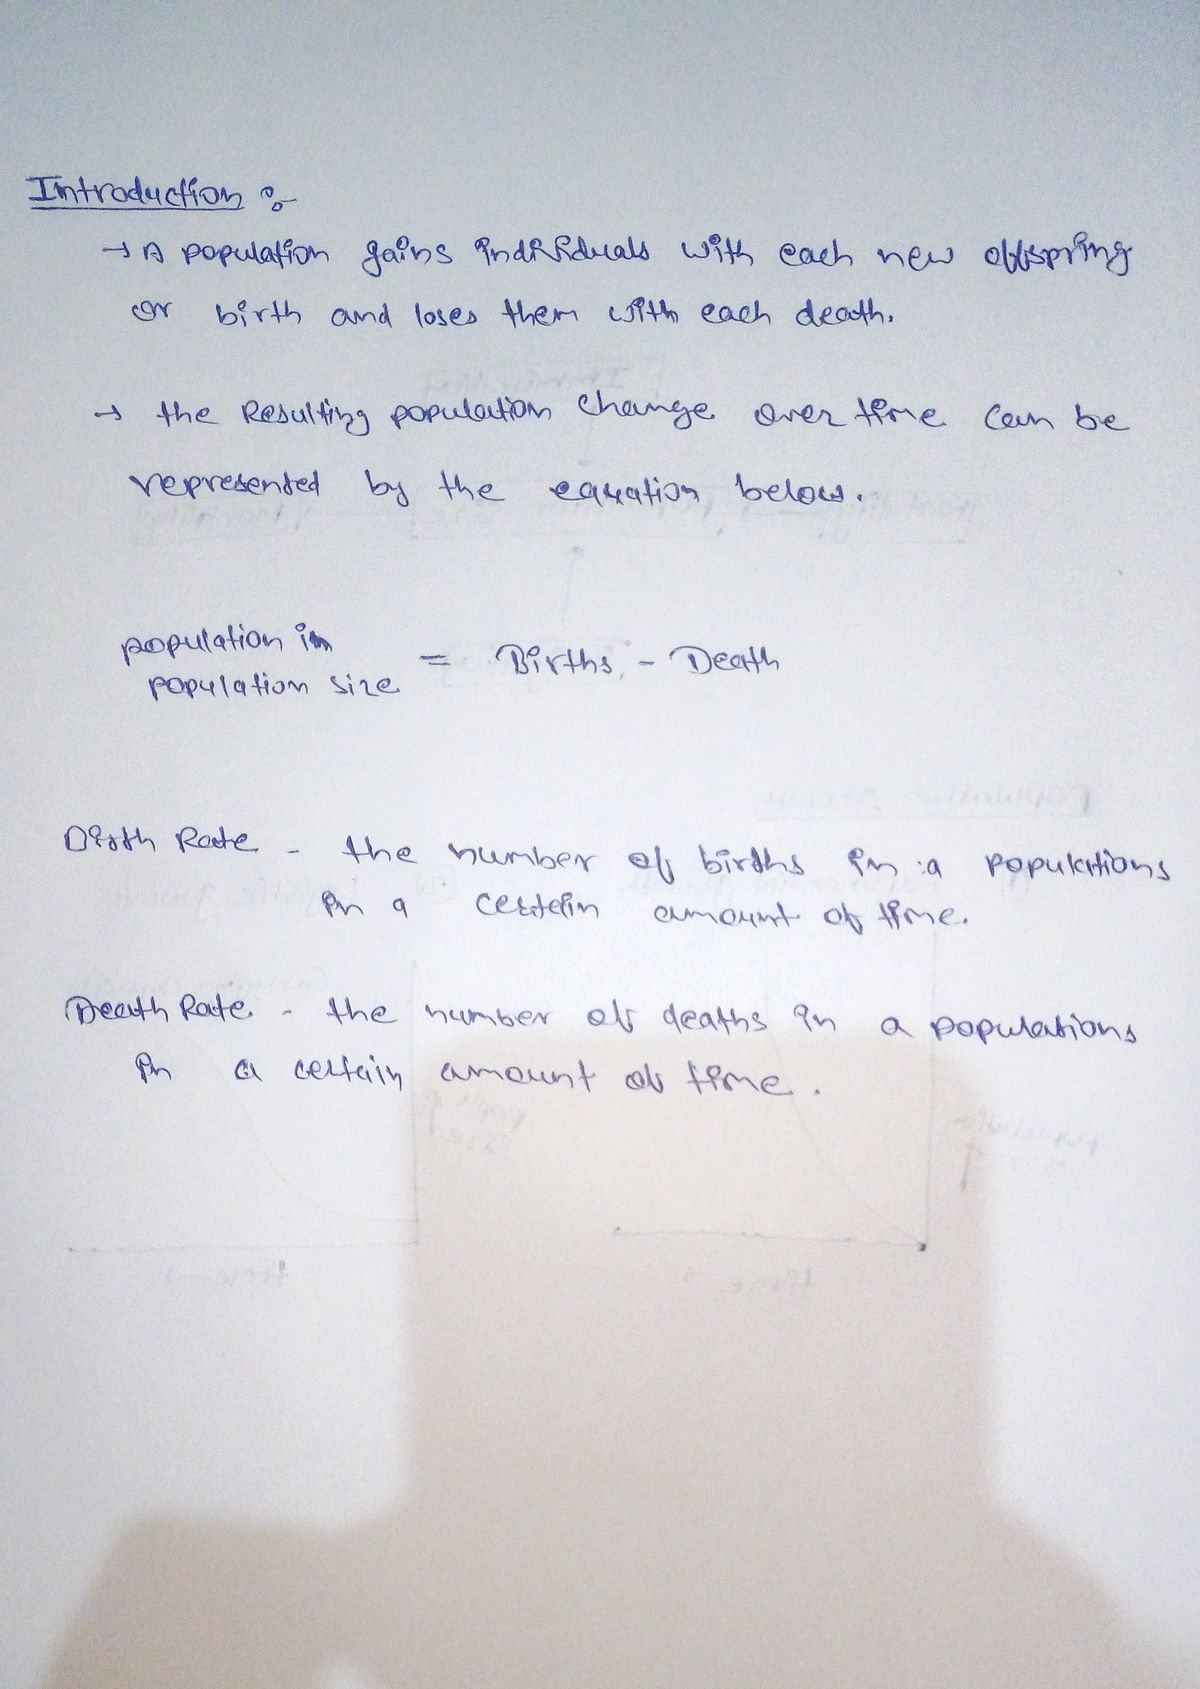 Introduction :-
→ A population gains individuals with each new offspring
or birth and loses them with each death.
→ the Resulting population change over time can be
represented by the equation below.
population in
population size = Births - Death
Birth Rate - the number of births in a populations
in a certain amount of time.
Death Rate - the number of deaths in a populations
in a certain amount of time.